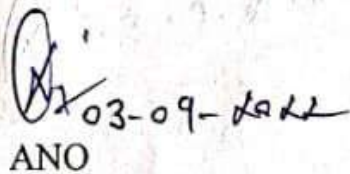 03-09-2022
ANO